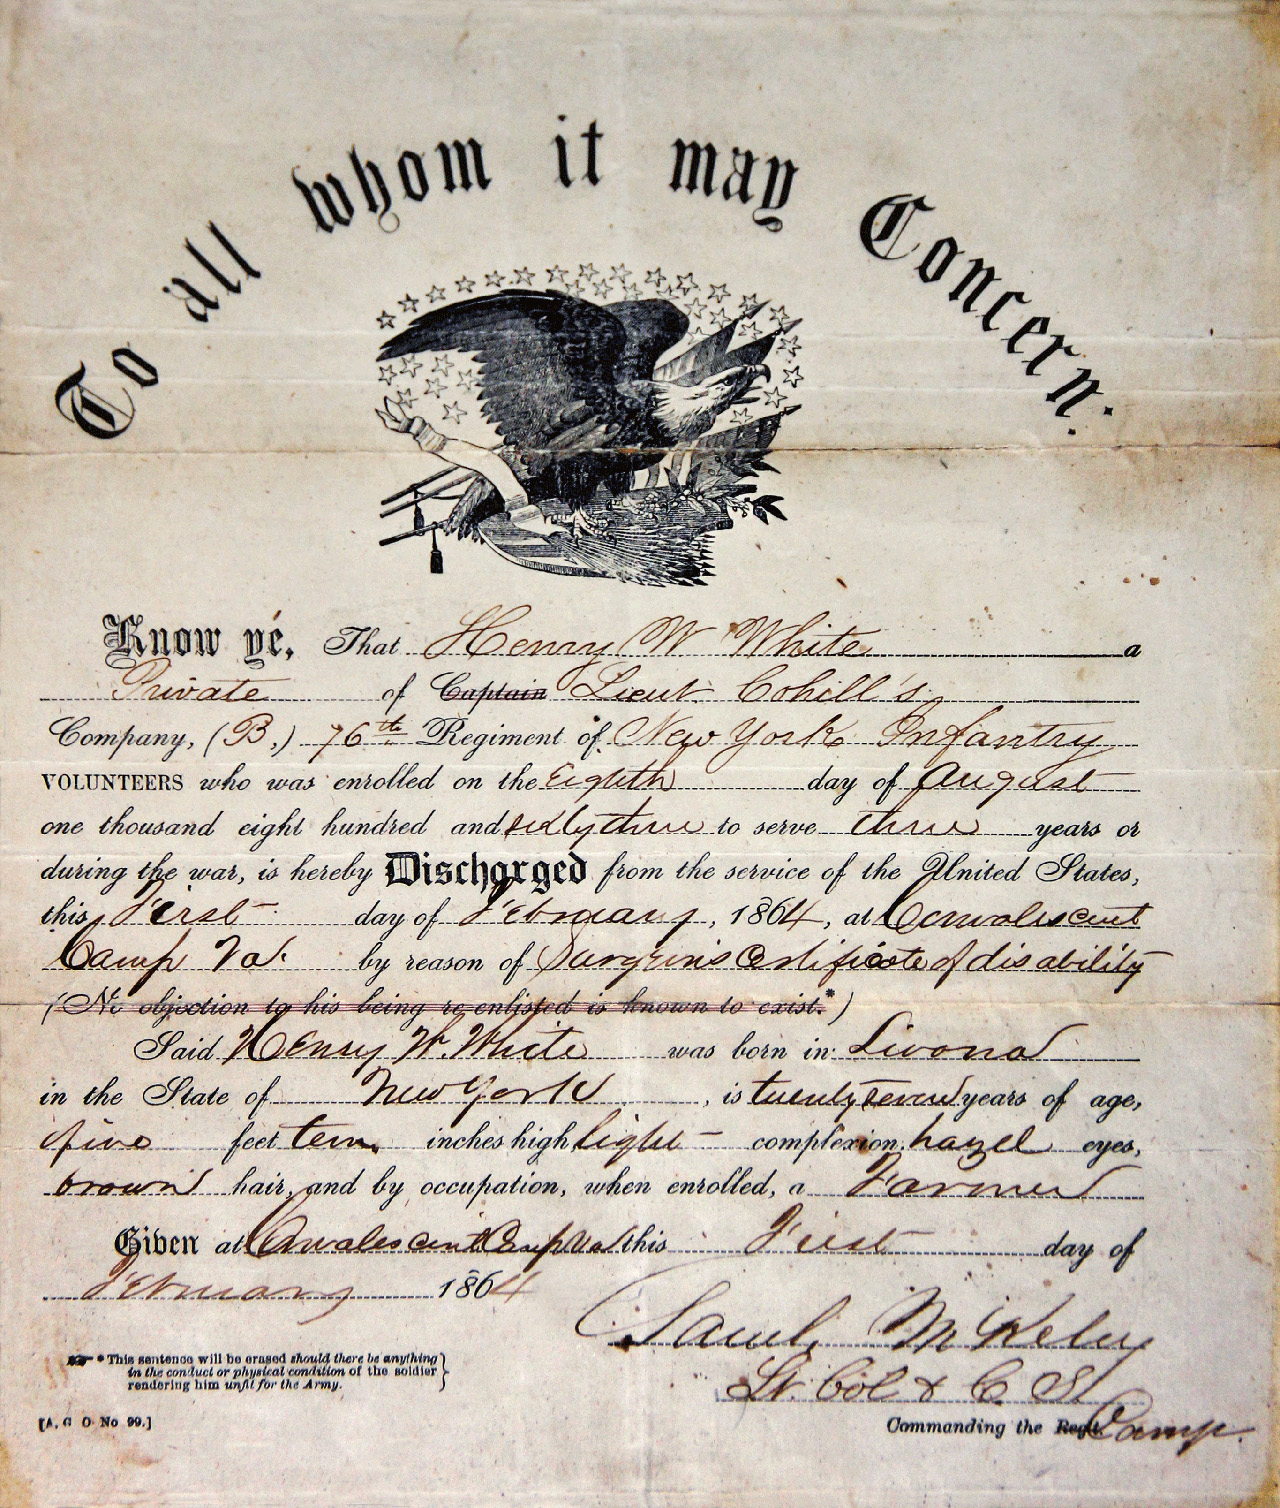 To all whom it may Concern:
Know ye, That Henry W White a
Private of Captain Lieut. Cahill's
Company, (B,) 76th Regiment of New York Infantry
VOLUNTEERS who was enrolled on the Eighth day of August
one thousand eight hundred and sixty three to serve three years or
during the war, is hereby Discharged from the service of the United States,
this First day of February, 1864, at Convalescent
Camp Va. by reason of Surgeon's Certificate of disability
(No objection to his being re-enlisted is known to exist.*)
Said Henry W. White was born in Livona
in the State of New York, is twenty seven years of age,
five feet ten inches high, light complexion, hazel eyes,
brown hair, and by occupation, when enrolled, a Farmer
Given at Convalescent Camp Va this First day of
February 1864
Saml. McKelvy
Lt. Col & C. S.
Commanding the Regt. Camp.
* This sentence will be erased should there be anything
in the conduct or physical condition of the soldier
rendering him unfit for the Army.
[A. G. O. No. 99.]